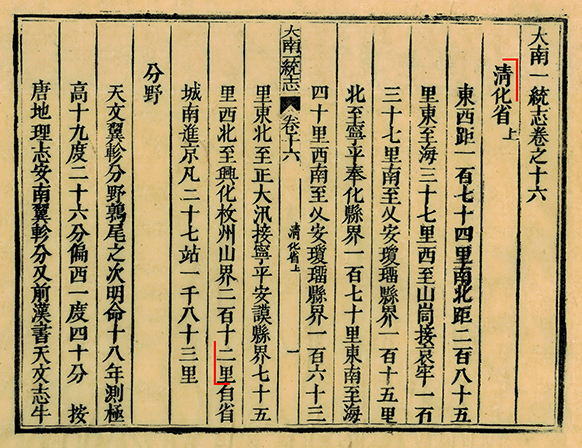 大南一統志卷之十六
清化省上
東西距一百七十四里南北距二百八十五
里東至海三十七里西至山峝接哀牢一百
三十七里南至乂安瓊瑠縣界一百十五里
北至寧平奉化縣界一百七十里東南至海
四十里西南至乂安瓊瑠縣界一百六十三
大南一統志 卷十六 清化省上 一
里東北至正大汛接寧平安謨縣界七十五
里西北至興化枚州山界二百十二里自省
城南進京凡二十七站一千八十三里
分野
天文翼軫分野鶉尾之次明命十八年測極
高十九度二十六分偏西一度四十分 按
唐地理志安南翼軫分又前漢書天文志牛